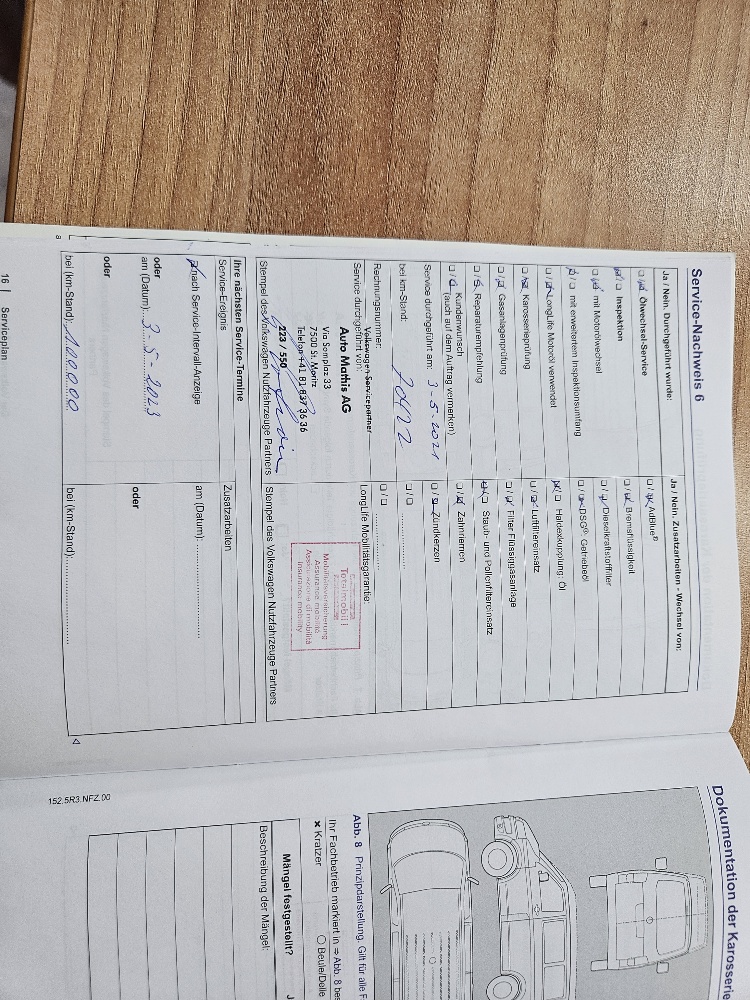 Service-Nachweis 6
Ja / Nein. Durchgeführt wurde:
Ölwechsel-Service
Inspektion
mit Motorölwechsel
mit erweitertem Inspektionsumfang
LongLife Motoröl verwendet
Karosserieprüfung
Gasanlagenprüfung
Reparaturempfehlung
Kundenwunsch
(auch auf dem Auftrag vermerken)
Service durchgeführt am: 3-5-2021
bei km-Stand:
Rechnungsnummer:
Service durchgeführt von:
Volkswagen-Servicepartner
Auto Mathis AG
Via Somplaz 33
7500 St. Moritz
Telefon +41 81 837 36 36
223 / 550
Stempel des Volkswagen Nutzfahrzeuge Partners
Ja / Nein. Zusatzarbeiten - Wechsel von:
AdBlue®
Bremsflüssigkeit
Dieselkraftstofffilter
DSG®: Getriebeöl
Haldexkupplung: Öl
Luftfiltereinsatz
Filter Flüssiggasanlage
Staub- und Pollenfiltereinsatz
Zahnriemen
Zündkerzen
LongLife Mobilitätsgarantie:
Totalmobil!
Mobilitätsversicherung
Assurance mobilité
Assicurazione di mobilità
Insurance mobility
Stempel des Volkswagen Nutzfahrzeuge Partners
Ihre nächsten Service-Termine
Service-Ereignis
nach Service-Intervall-Anzeige
oder
am (Datum): 3-5-2023
oder
bei (km-Stand): 100000
Zusatzarbeiten
am (Datum):
oder
bei (km-Stand):
16 | Serviceplan
Dokumentation der Karosserie
Abb. 8 Prinzipdarstellung. Gilt für alle F
Ihr Fachbetrieb markiert in ⇒ Abb. 8 bes
× Kratzer
○ Beule/Delle
Mängel festgestellt?
J
Beschreibung der Mängel:
152.5R3.NFZ.00